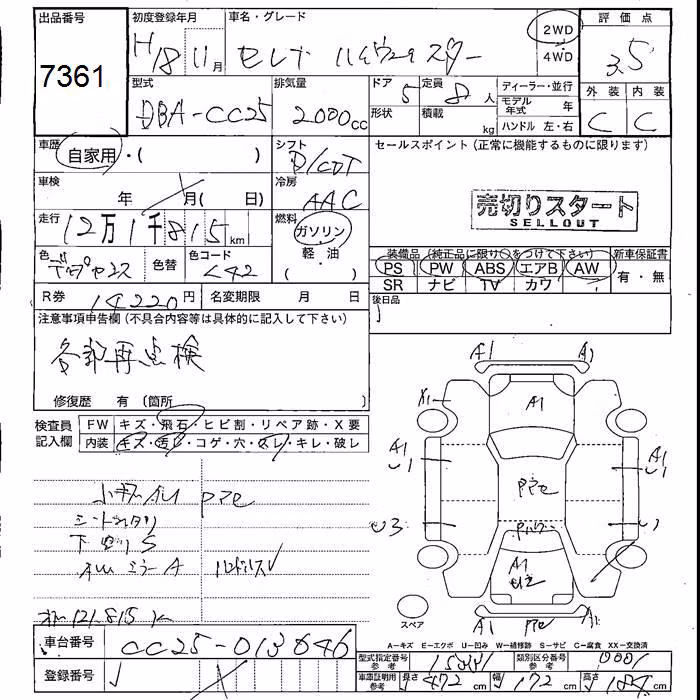 出品番号 初度登録年月 車名・グレード 2WD 評価点
7361 H18 11月 セレナ ハイウェイスター 4WD 3.5
型式 排気量 ドア 定員 ディーラー・並行 外装 内装
DBA-CC25 2000cc 5 8人 モデル年式 年 C C
形状 積載 kg ハンドル 左・右
車歴 自家用・( ) シフト セールスポイント (正常に機能するものに限ります)
車検 年 月( 日) 冷房 AAC
売切りスタート
SELLOUT
走行 12万1千815km 燃料 ガソリン・軽・油
色 色替 色コード 装備品 (純正品に限り○をつけて下さい) 新車保証書
PS PW ABS エアB AW 有・無
SR ナビ TV カワ
R券 14220円 名変期限 月 日 後日品
注意事項申告欄 (不具合内容等は具体的に記入して下さい)
各部再点検
修復歴 有 (箇所 )
検査員記入欄 FW キズ・飛石・ヒビ割・リペア跡・X要
内装 キズ・汚レ・コゲ・穴・スレ・キレ・破レ
A1 A1
A1
A1
U1
U3
A1
下廻りS
ミラーA
121,815K
A1
スペア
A=キズ E=エクボ U=凹み W=補修跡 S=サビ C=腐食 XX=交換済
車台番号 CC25-013646
型式指定番号 参考 類別区分番号 参考 0001
登録番号 車庫証明用 参考 長さ 472cm 幅 172cm 高さ cm